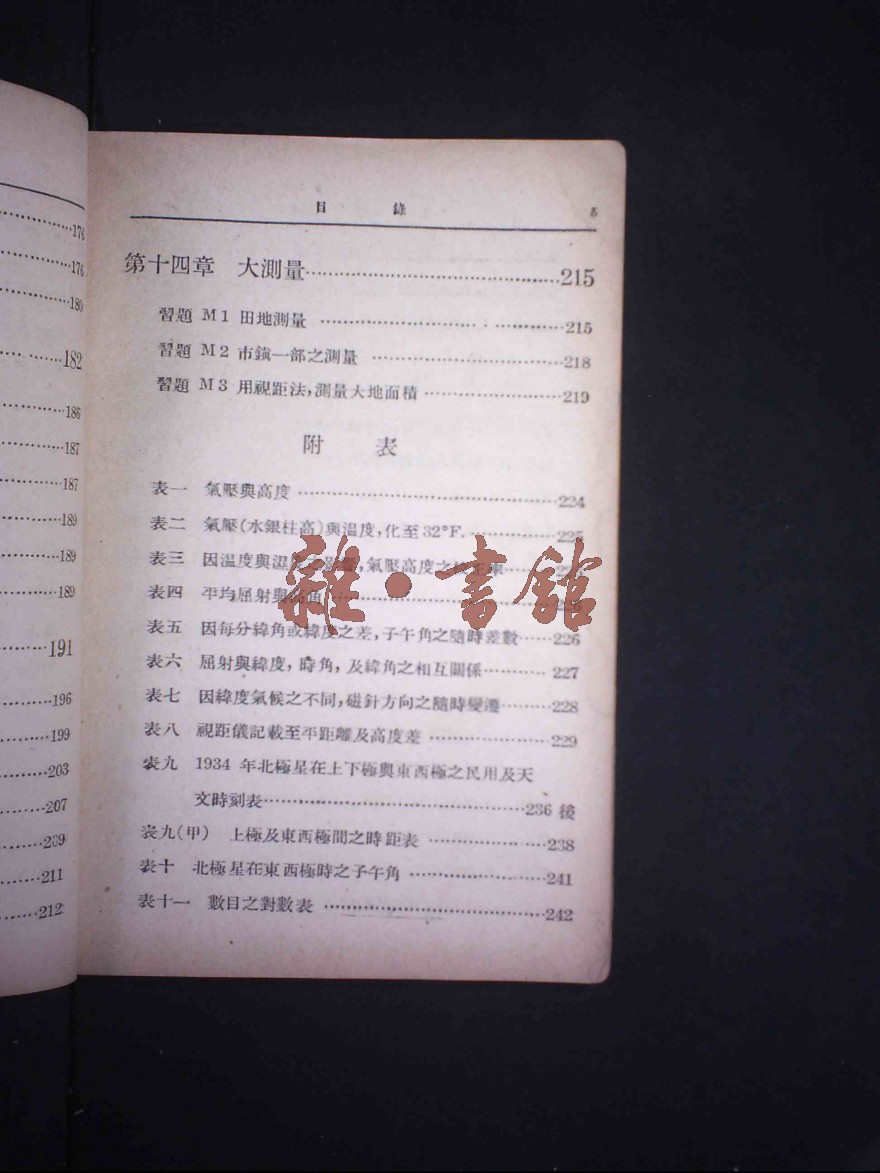 176
176
180
182
186
187
187
189
189
189
191
196
199
203
207
209
211
212
目 錄 5
第十四章 大測量……215
習題 M1 田地測量……215
習題 M2 市鎮一部之測量……218
習題 M3 用視距法,測量大地面積……219
附 表
表一 氣壓與高度……224
表二 氣壓(水銀柱高)與溫度,化至32°F.……225
表三 因溫度與濕度之影響,氣壓高度之
表四 平均屈射與
表五 因每分緯角或緯度之差,子午角之隨時差數……226
表六 屈射與緯度,時角,及緯角之相互關係……227
表七 因緯度氣候之不同,磁針方向之隨時變遷……228
表八 視距儀記載至平距離及高度差……229
表九 1934 年北極星在上下極與東西極之民用及天
文時刻表……236 後
表九(甲) 上極及東西極間之時距表……238
表十 北極星在東西極時之子午角……241
表十一 數目之對數表……242
雜·書館